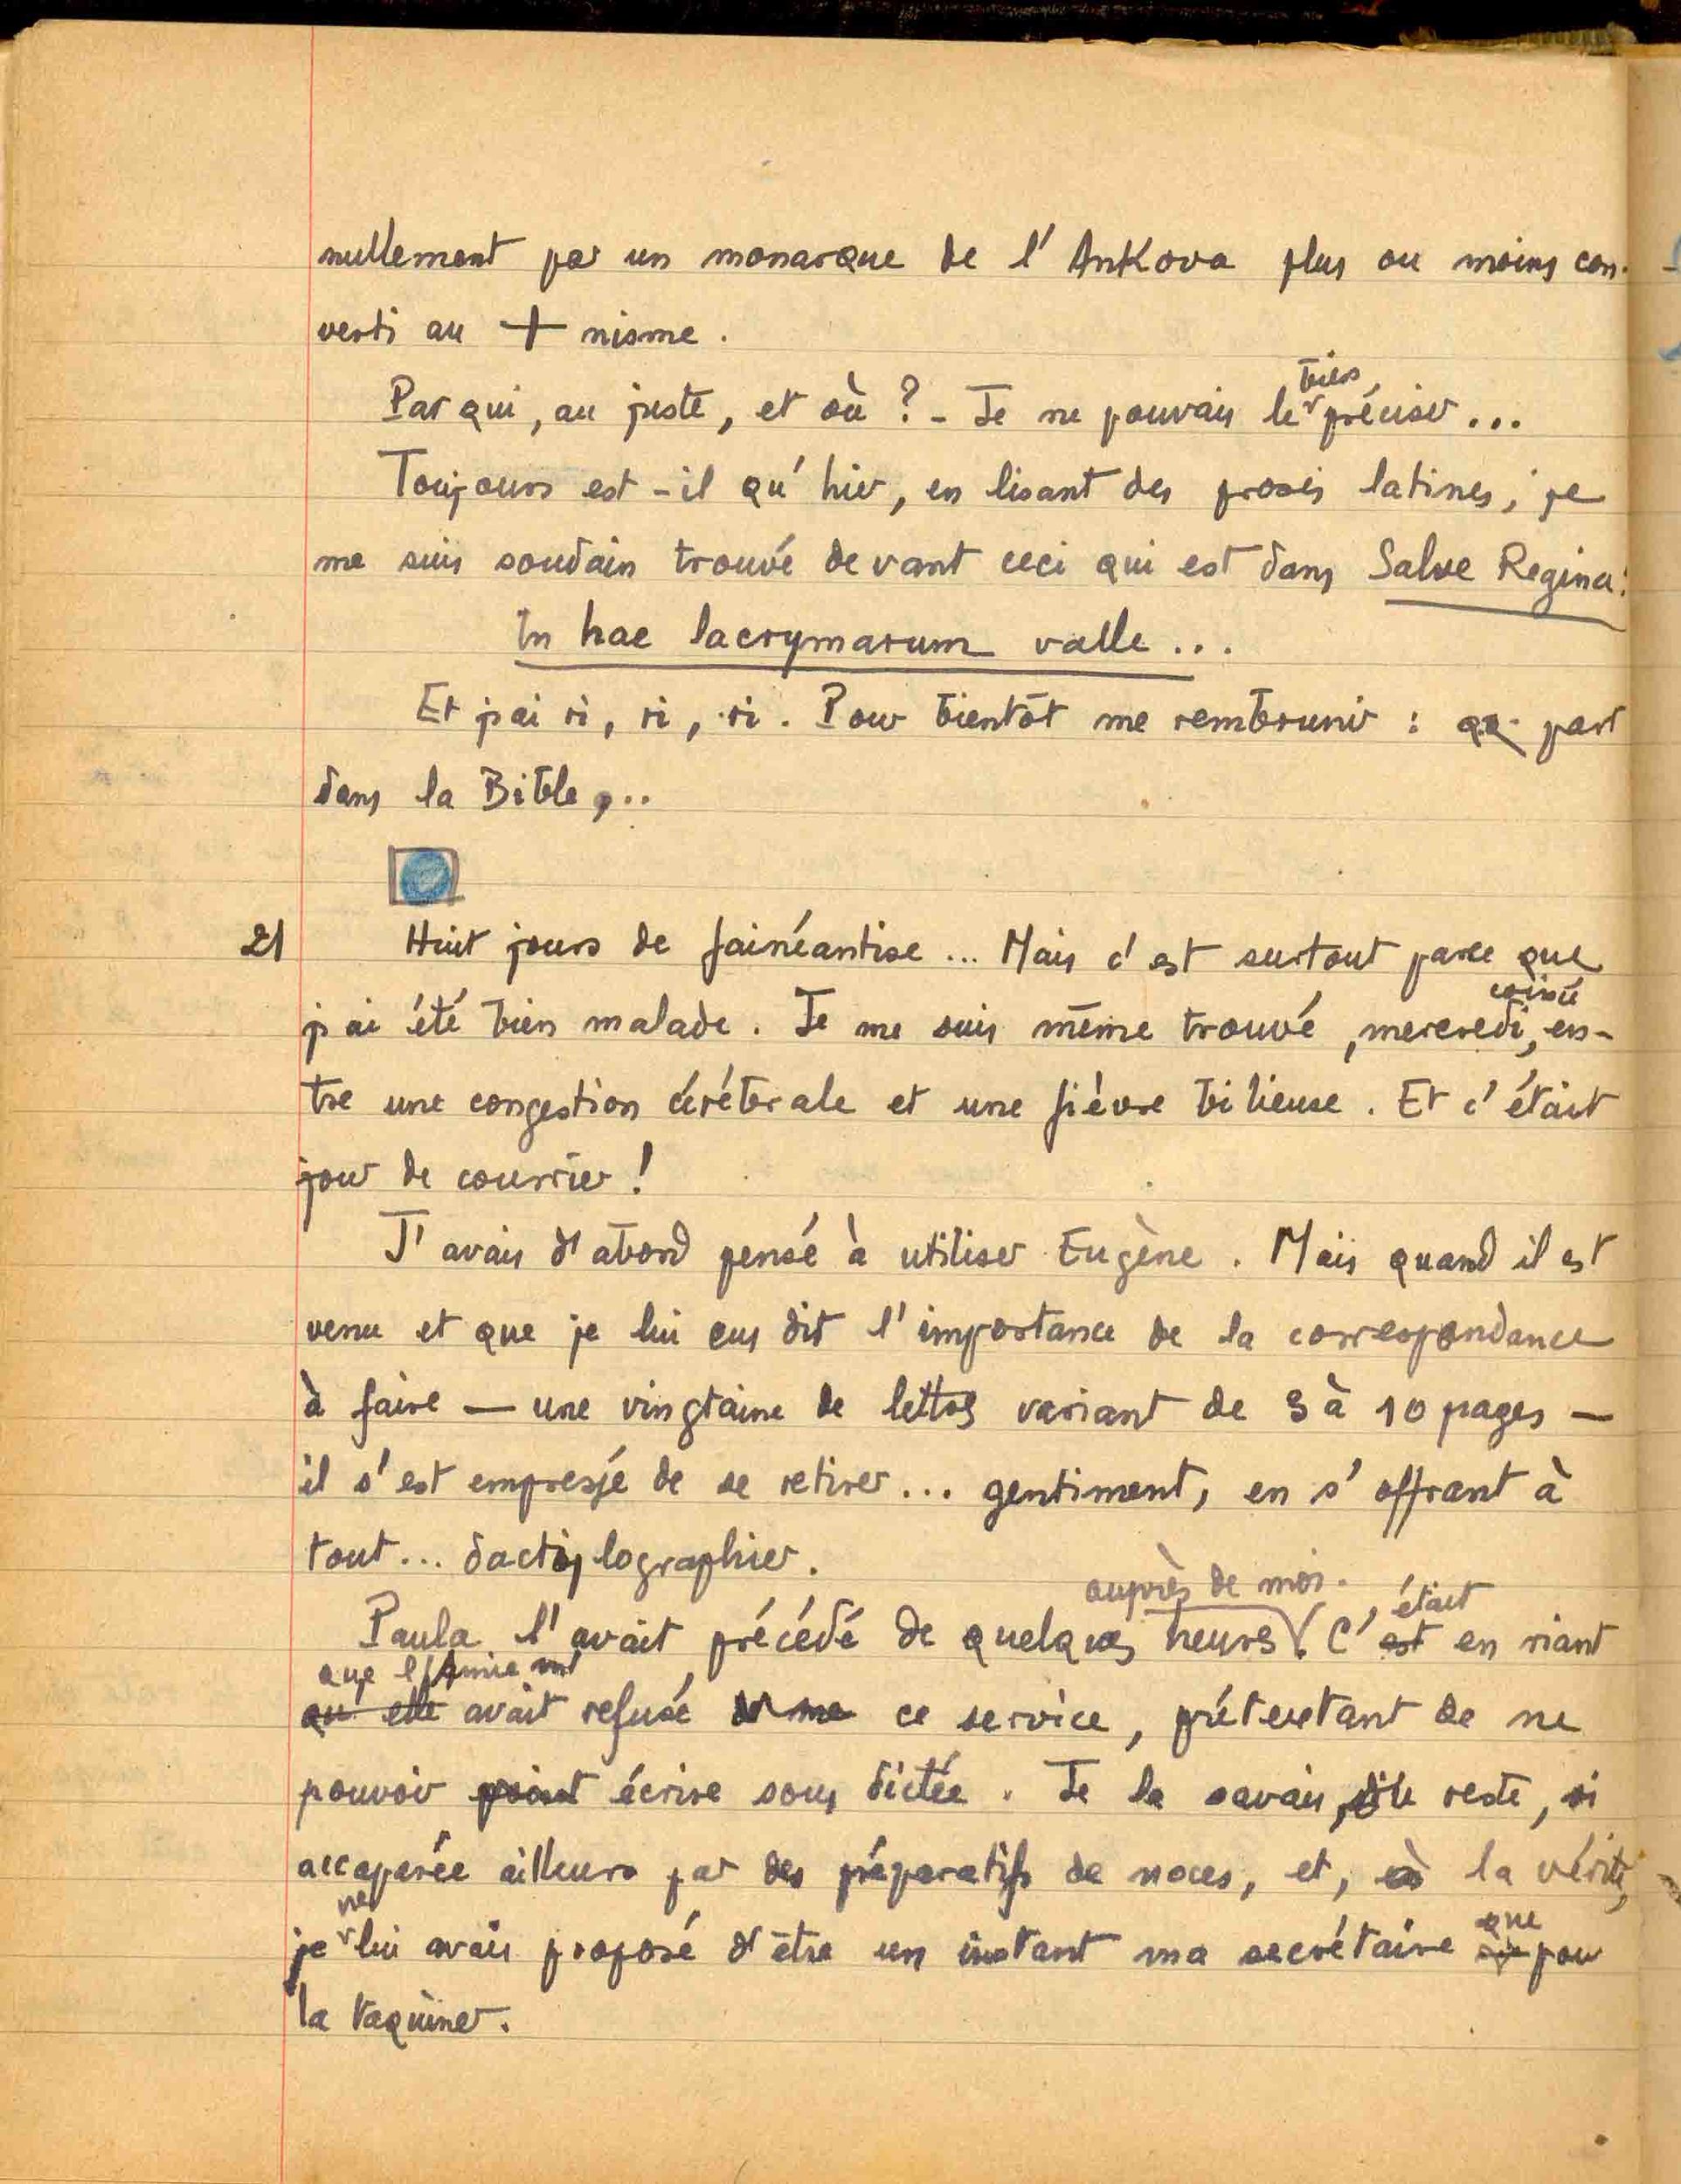 nullement par un monarque de l'Ankova plus ou moins con-
verti au + nisme.
Par qui, au juste, et où ? - Je ne pouvais le bien préciser...
Toujours est-il qu'hier, en lisant des proses latines, je
me suis soudain trouvé devant ceci qui est dans Salve Regina:
In hac lacrymarum valle...
Et j'ai ri, ri, ri. Pour bientôt me rembrunir : qq. part
dans la Bible,..
21 Huit jours de fainéantise... Mais c'est surtout parce que
j'ai été bien malade. Je me suis même trouvé, mercredi, coincé en-
tre une congestion cérébrale et une fièvre bilieuse. Et c'était
jour de courrier !
J'avais d'abord pensé à utiliser Eugène. Mais quand il est
venu et que je lui eus dit l'importance de la correspondance
à faire — une vingtaine de lettres variant de 3 à 10 pages —
il s'est empressé de se retirer... gentiment, en s'offrant à
tout... dactylographier.
Paula l'avait précédé de quelques heures auprès de moi. C'est était en riant
qu'elle que l'Amie avait refusé me ce service, prétextant de ne
pouvoir point écrire sous dictée. Je la savais, du reste, si
accaparée ailleurs par des préparatifs de noces, et, à la vérité,
je ne lui avais proposé d'être un instant ma secrétaire que pour
la taquiner.